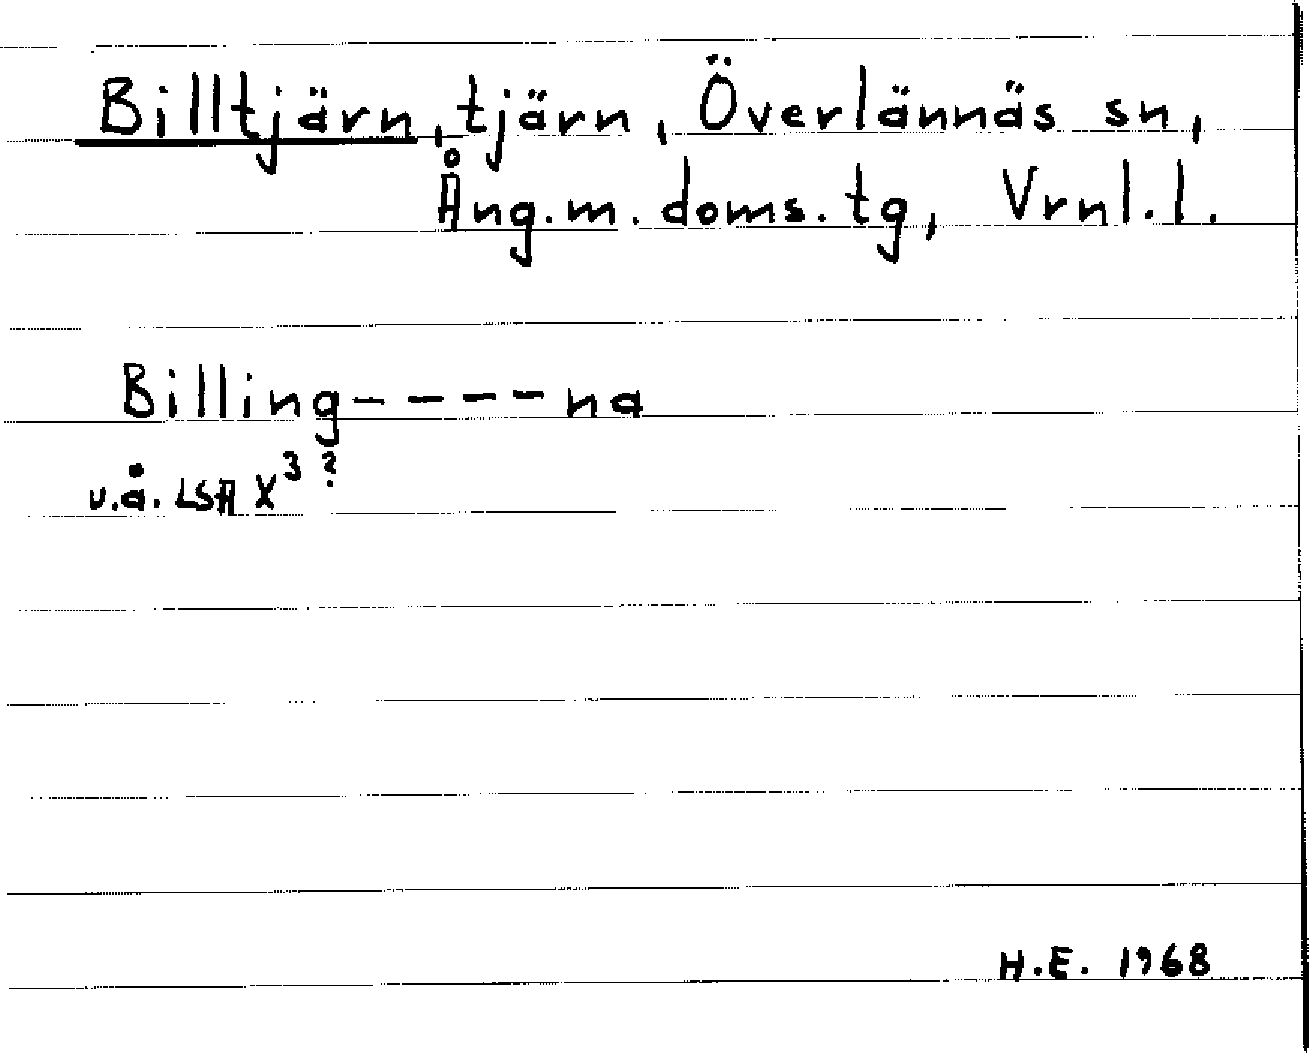 Billtjärn, tjärn, Överlännäs sn,
Ång.m. doms. tg, Vrnl.l.
Billing- - - - -na
u.å. LSA X³?
H.E. 1968